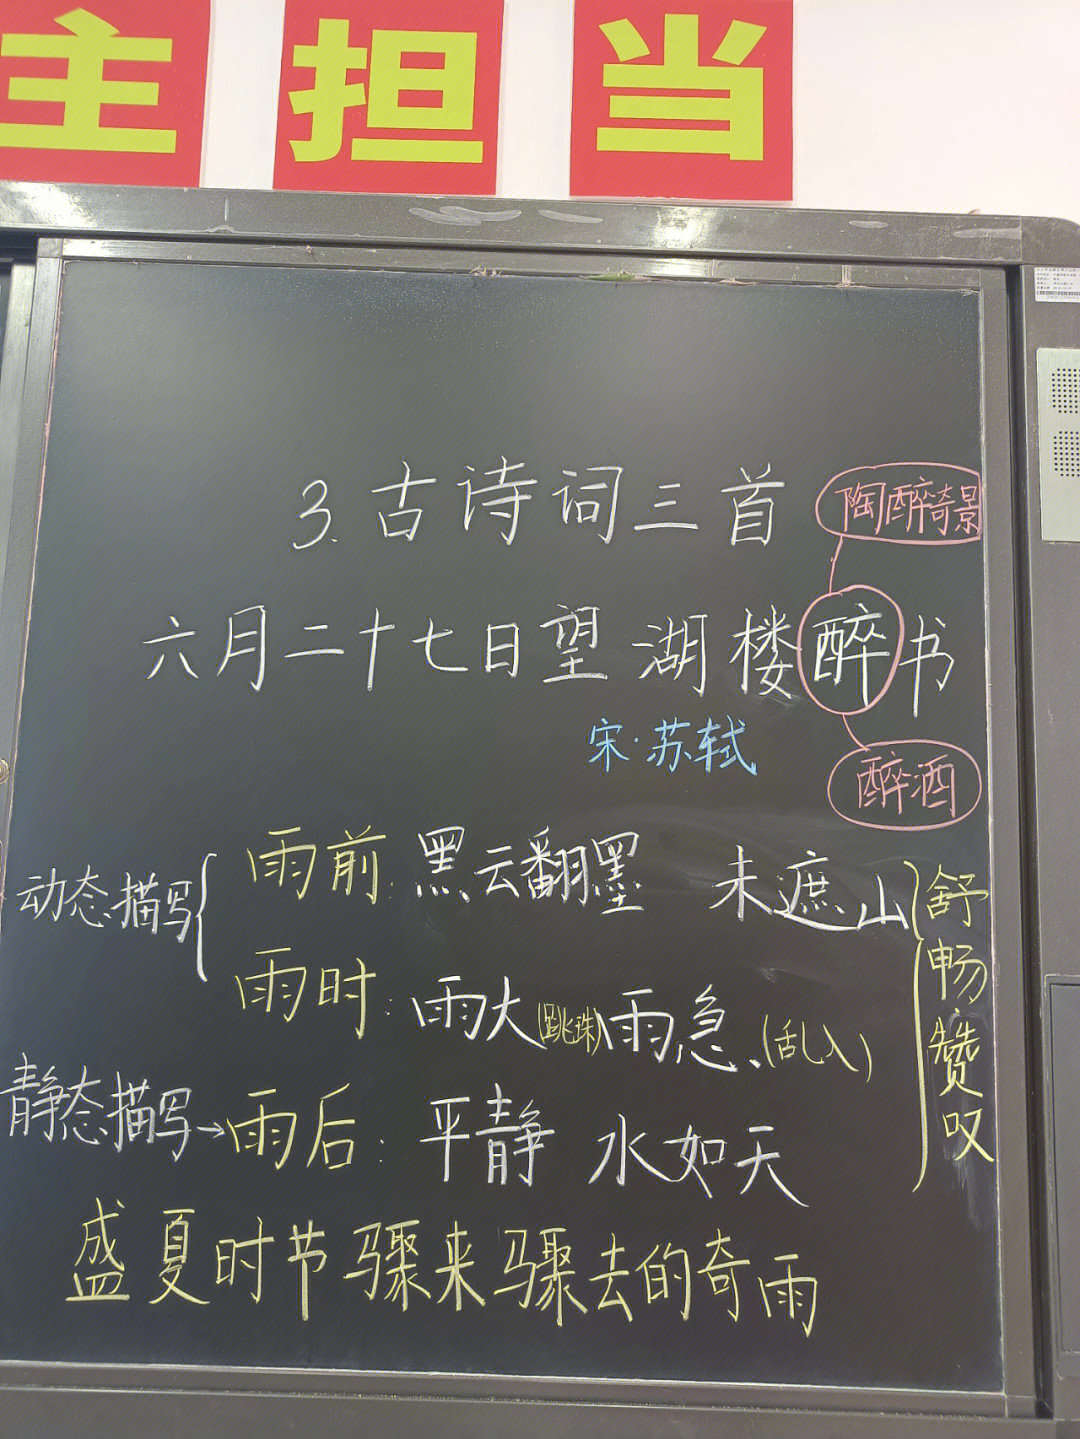 主担当
3.古诗词三首
陶醉奇景
六月二十七日望湖楼醉书
宋·苏轼
醉酒
动态描写
雨前:黑云翻墨 未遮山
雨时:雨大(跳珠)雨急、(乱入)
静态描写→雨后:平静 水如天
舒畅赞叹
盛夏时节骤来骤去的奇雨